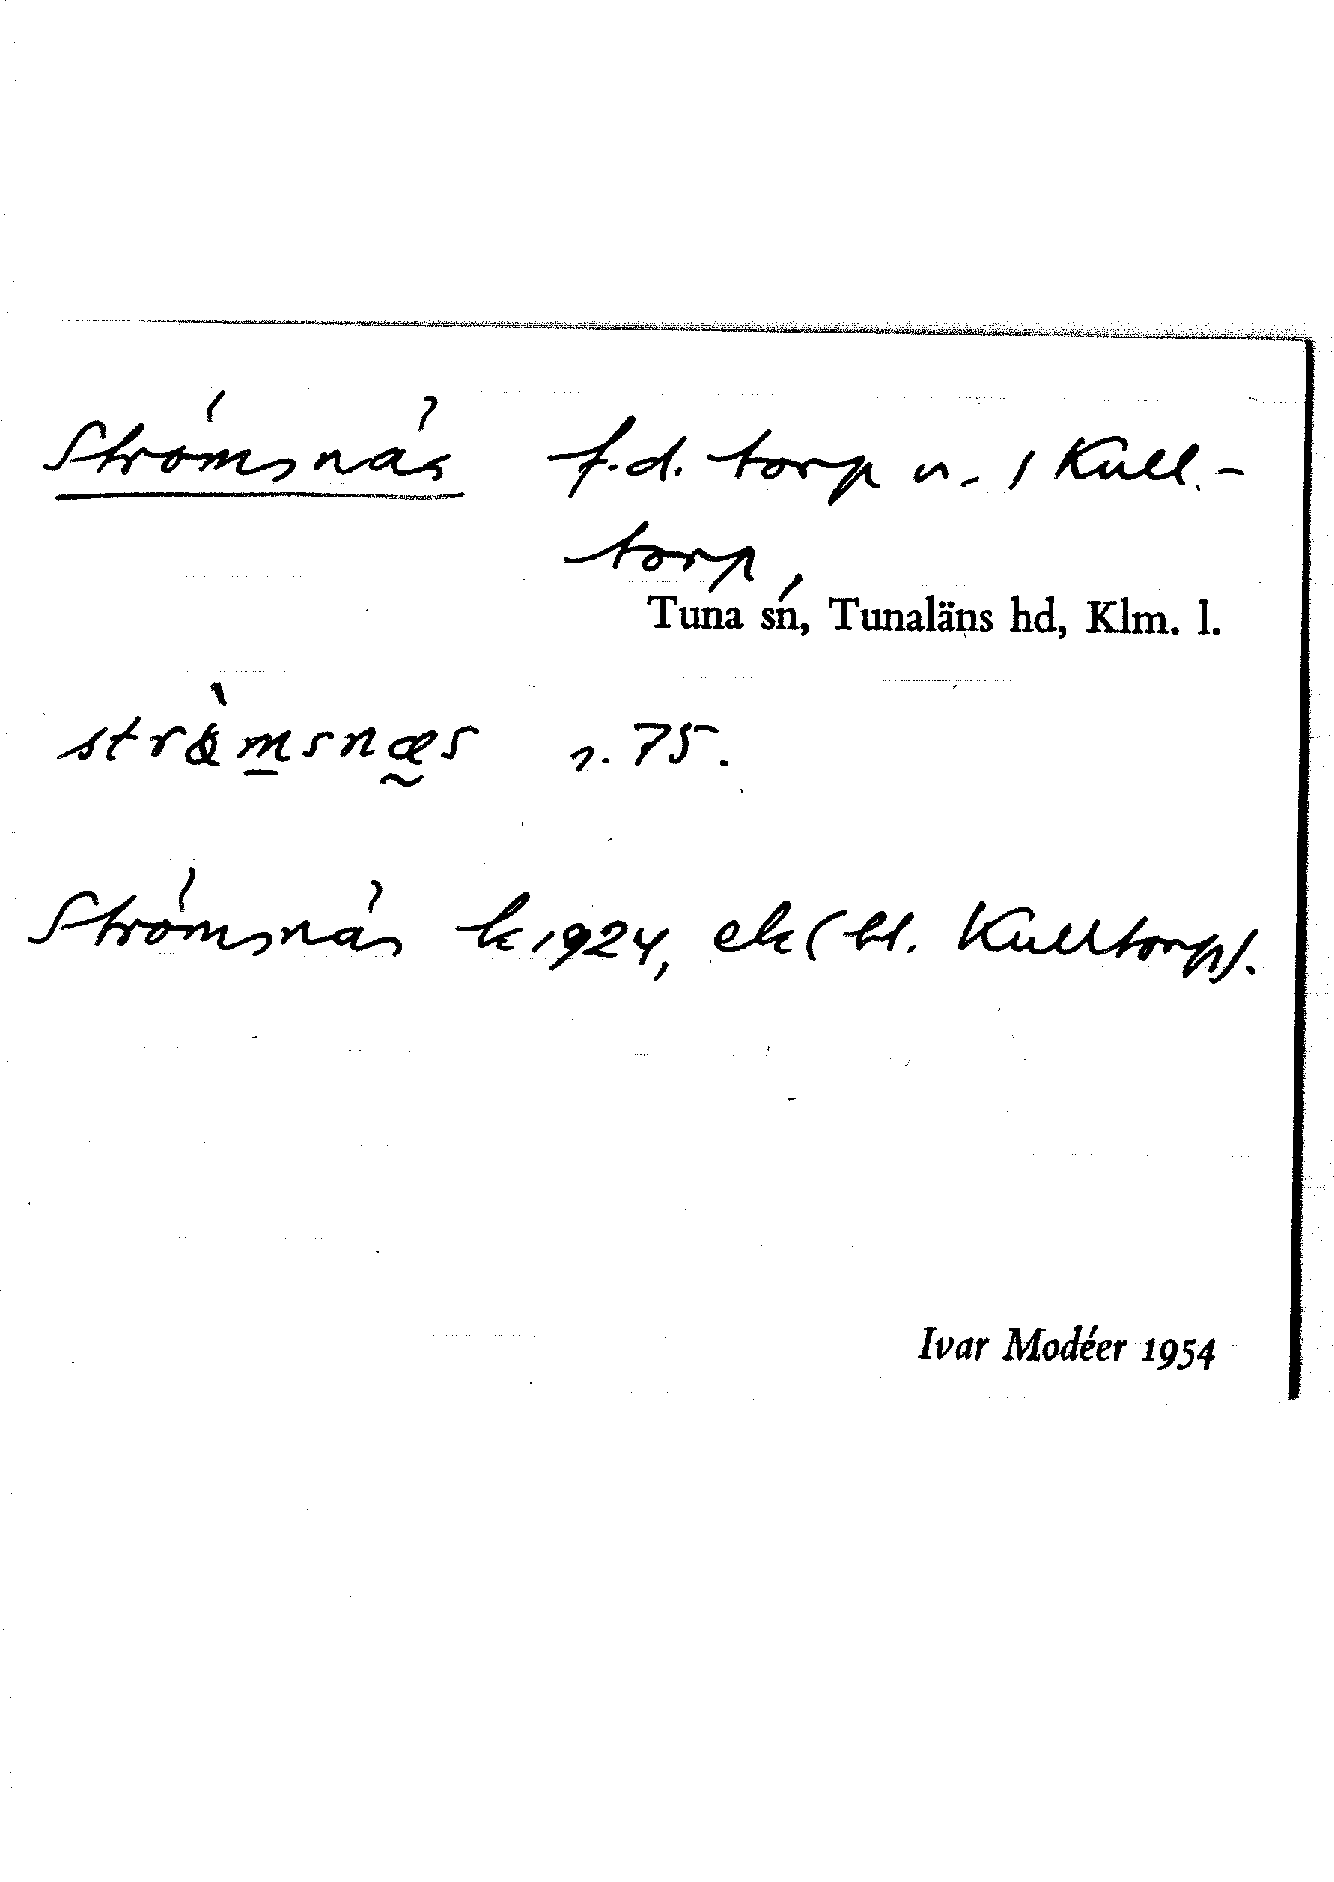 Strömsnäs f.d. torp u. / Kull-
torp,
Tuna sn, Tunaläns hd, Klm. l.
strö̀msnæs r. 75.
Strömsnäs k 1924, ek (bl. Kulltorp).
Ivar Modéer 1954